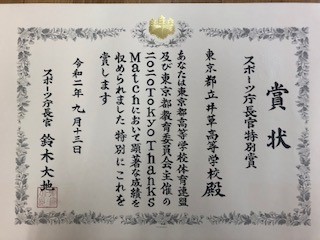 賞状
スポーツ庁長官特別賞
東京都立井草高等学校殿
あなたは東京都高等学校体育連盟
及び東京都教育委員会主催の
二〇二〇Tokyo Thanks
Matchにおいて顕著な成績を
収められました 特別にこれを
賞します
令和二年 九月十三日
スポーツ庁長官 鈴木大地